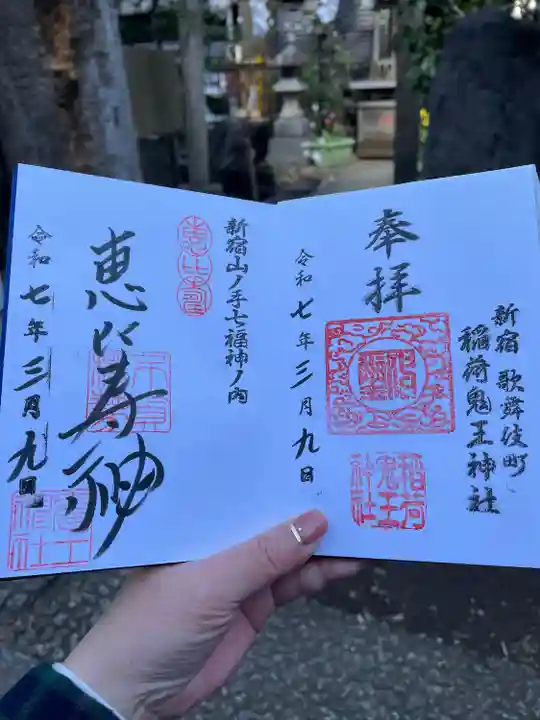 新宿 歌舞伎町
稲荷鬼王神社
奉拝
稲荷
鬼王
神社
令和七年三月九日
新宿山ノ手七福神ノ内
恵比寿
恵比寿神
令和七年三月九日